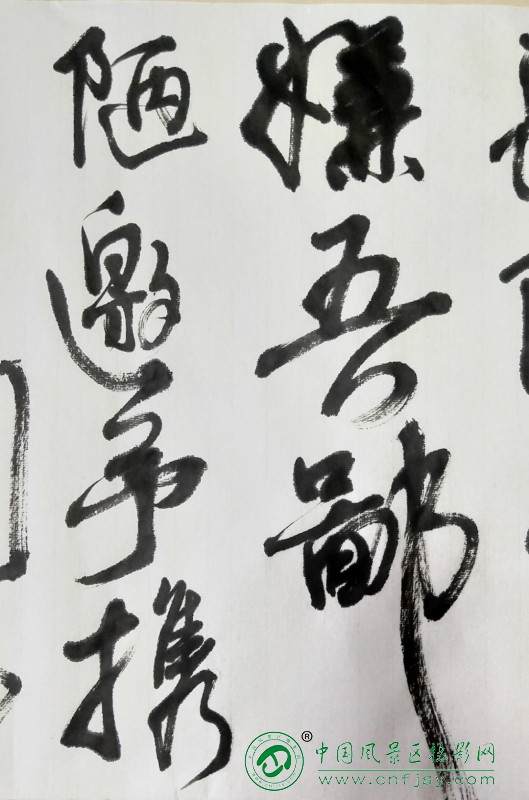 嫌吾鄙
陋邀予携
®
中国风景区摄影网
www.cnfjsy.com